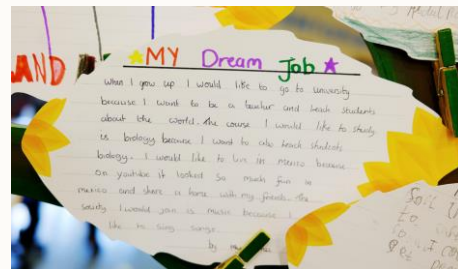 AND
MY Dream Job
when I grow up I would like to go to university
because I want to be a teacher and teach students
about the world. The course I would like to study
is biology because I want to also teach students
biology. I would like to live in mexico because
on youtube it looked so much fun in
mexico and share a home with my friends. the
society I would join is music because I
like to sing songs.
by